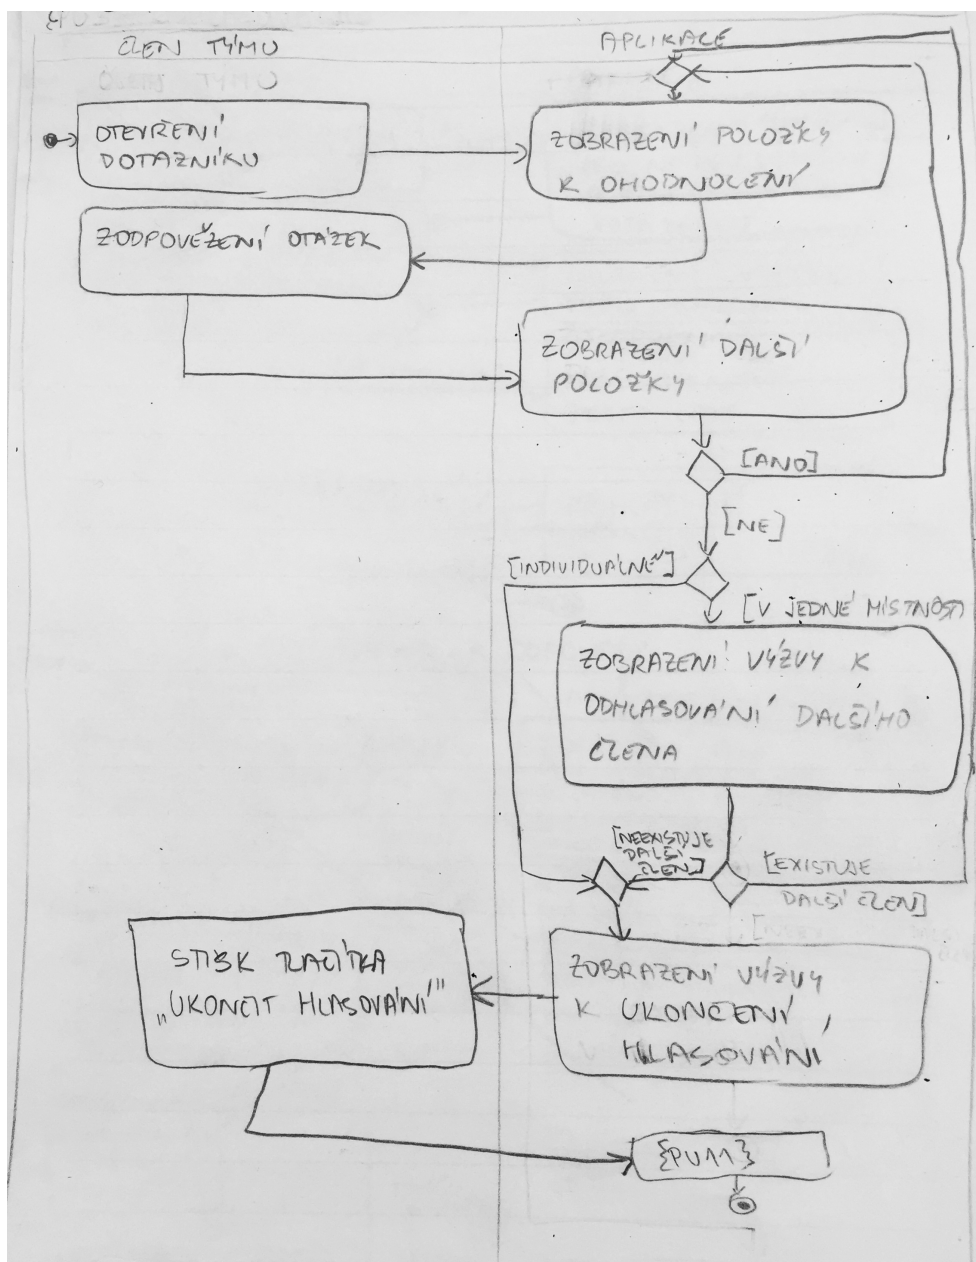 ČLEN TÝMU
APLIKACE
OTEVŘENÍ
DOTAZNÍKU
ZOBRAZENÍ POLOŽKY
K OHODNOCENÍ
ZODPOVĚZENÍ OTÁZEK
ZOBRAZENÍ DALŠÍ
POLOŽKY
[ANO]
[NE]
[INDIVIDUÁLNĚ]
[V JEDNÉ MÍSTNOSTI
ZOBRAZENÍ VÝZVY K
ODHLASOVÁNÍ DALŠÍHO
ČLENA
[NEEXISTUJE
DALŠÍ
ČLEN]
[EXISTUJE
DALŠÍ ČLEN]
STISK TLAČÍTKA
„UKONČIT HLASOVÁNÍ"
ZOBRAZENÍ VÝZVY
K UKONČENÍ
HLASOVÁNÍ
{PU11}